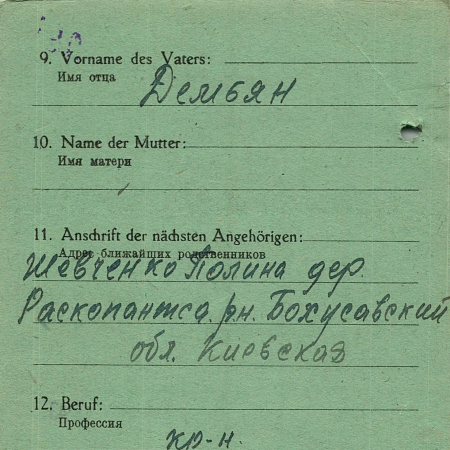 9. Vorname des Vaters:
Имя отца
Дембян
10. Name der Mutter:
Имя матери
11. Anschrift der nächsten Angehörigen:
Адрес ближайших родственников
Шевченко Полина дер.
Раскопантса. рн. Бохусавский
обл. Киевская
12. Beruf:
Профессия
кр-н.